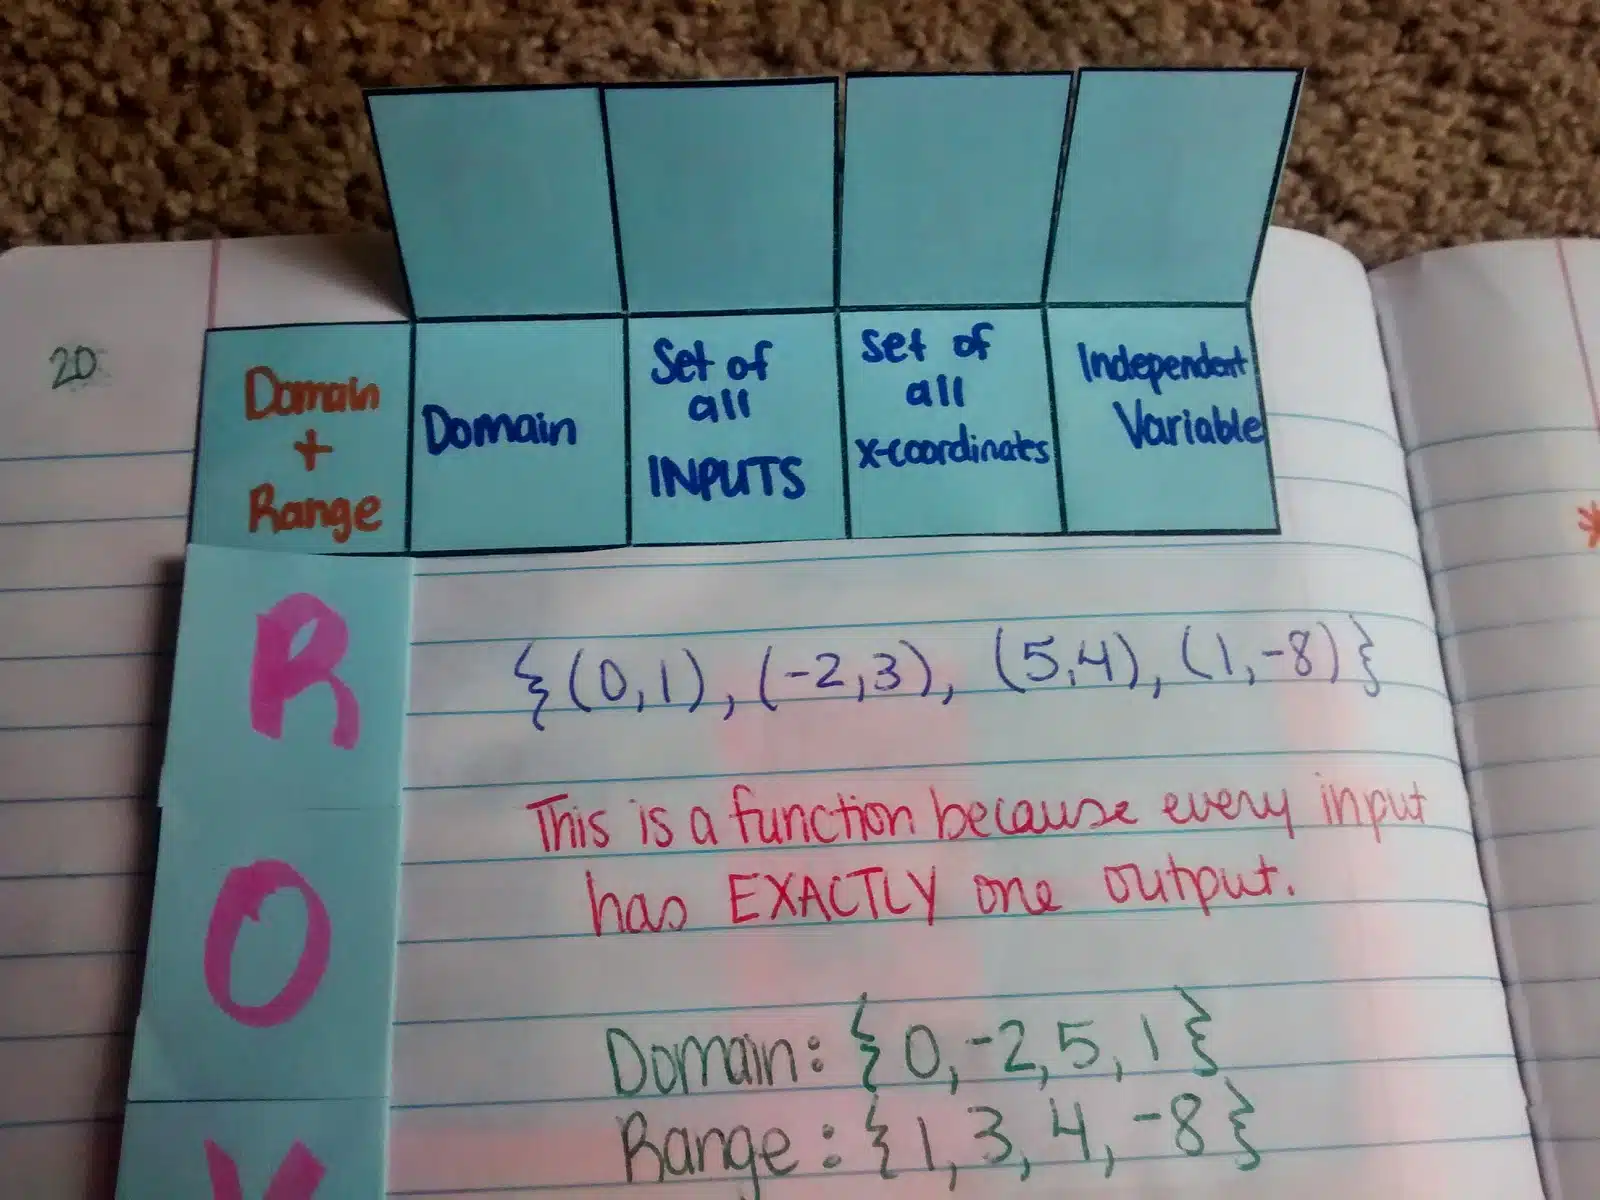 20
Domain
+
Range
Domain
Set of
all
INPUTS
set of
all
x-coordinates
Independent
Variable
R
{(0,1), (-2,3), (5,4), (1,-8)}
This is a function because every input
has EXACTLY one output.
O
Domain: {0,-2,5,1}
Range: {1,3,4,-8}